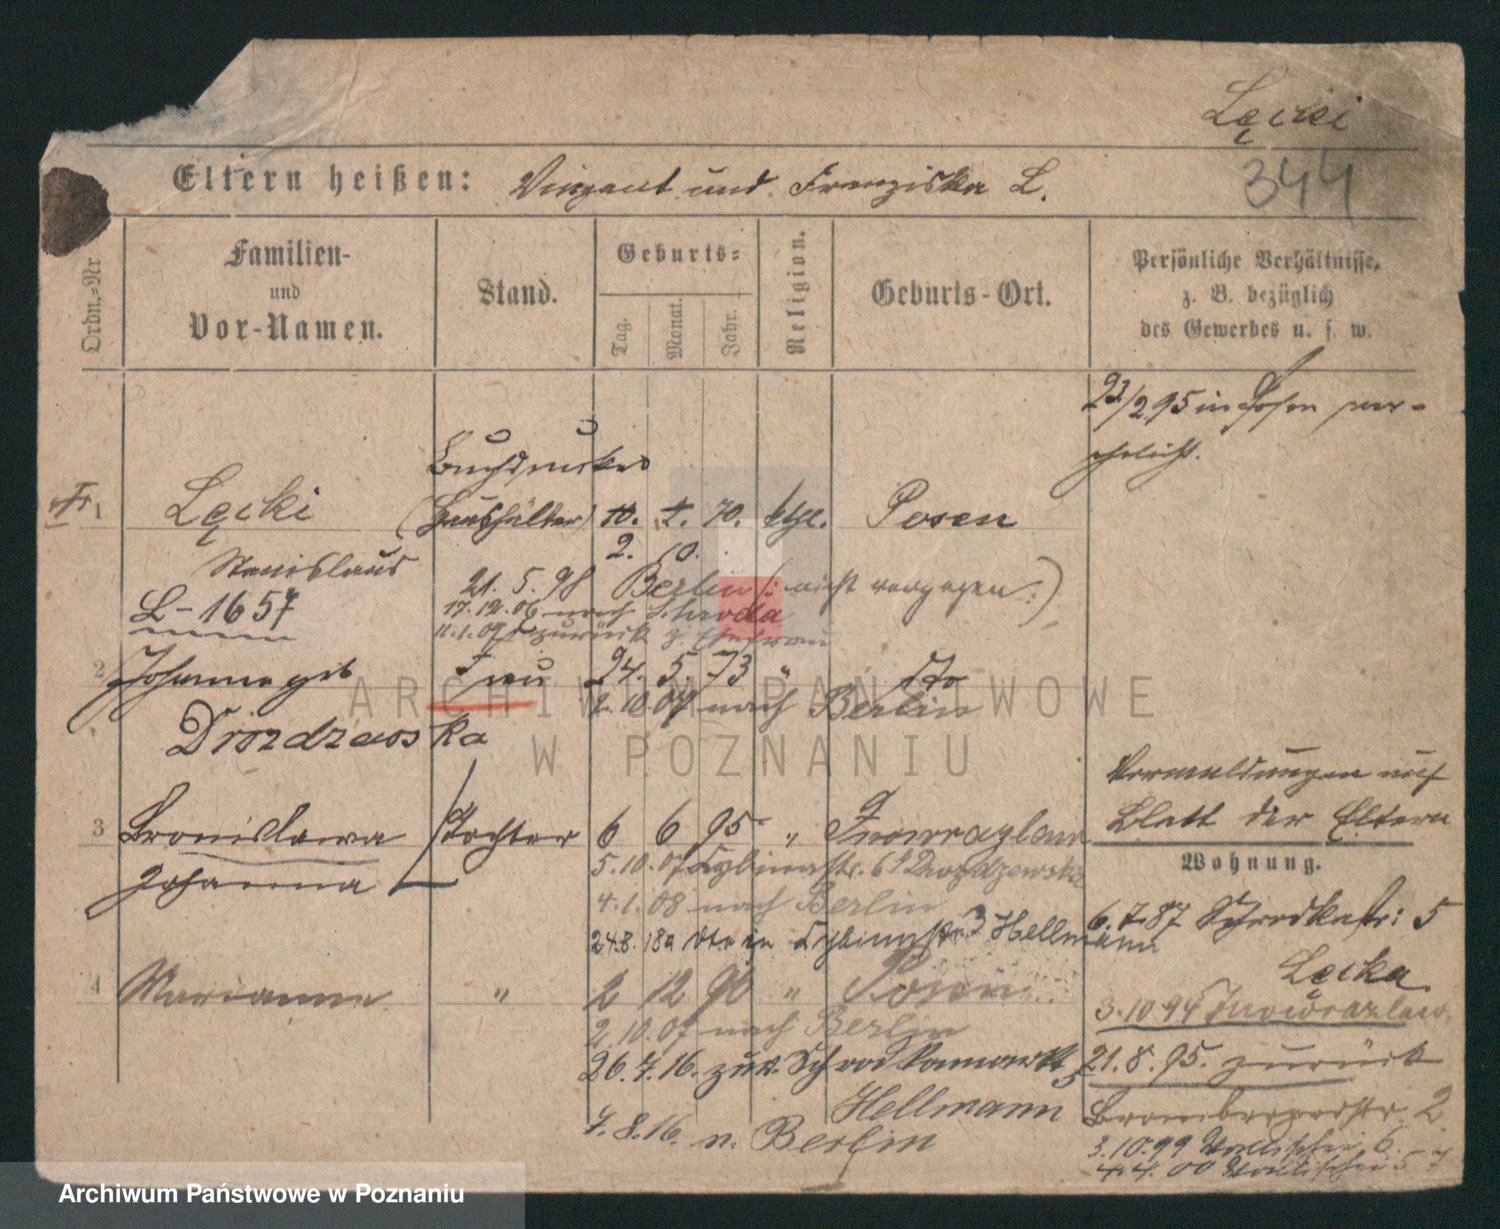 Łęcki
344
Eltern heißen: Vinzent und Franziska L.
Ordn.-Nr
Familien-
und
Vor-Namen.
Stand.
Geburts-
Tag.
Monat.
Jahr.
Religion.
Geburts-Ort.
Persönliche Verhältnisse,
z. B. bezüglich
des Gewerbes u. s. w.
23/2 95 in Posen ver-
ehelicht.
Buchdrucker
Fr 1 Łęcki (Haushälter) 10. 70. kth. Posen
2. 10.
Stanislaus
21. 5. 98 Berlin (: nicht vergegen :)
L-1657
17.12.06 nach Schroda
11.1.07 zurück z. Ehefrau
2 Johanna geb Frau 24. 5. 73 " dto
2.10.07 nach Berlin
Drozdzewska
Vermeldungen auf
Blatt der Eltern
3 Bronislawa Tochter 6 6 95 " Inowrazlaw
Johanna
5.10.07 Cybinastr. 6 Drozdzewska
4.1.08 nach Berlin
24.8.18 Cybinastr. 3 Hellmann
Wohnung.
6.7.87 Schrodkastr: 5
Łęcka
4 Marianna " 2 12 90 " Posen
3.10 94 Inowrazlaw
2.10.07 nach Berlin
26.7.16. zur. Schrodkamarkt 5
Hellmann
21.8.95. zurück
7.8.16. n. Berlin
Brombergerstr. 2
3.10.99 Wallischei 6
4.4.00 Wallischei 57
ARCHIWUM PAŃSTWOWE
W POZNANIU
Archiwum Państwowe w Poznaniu